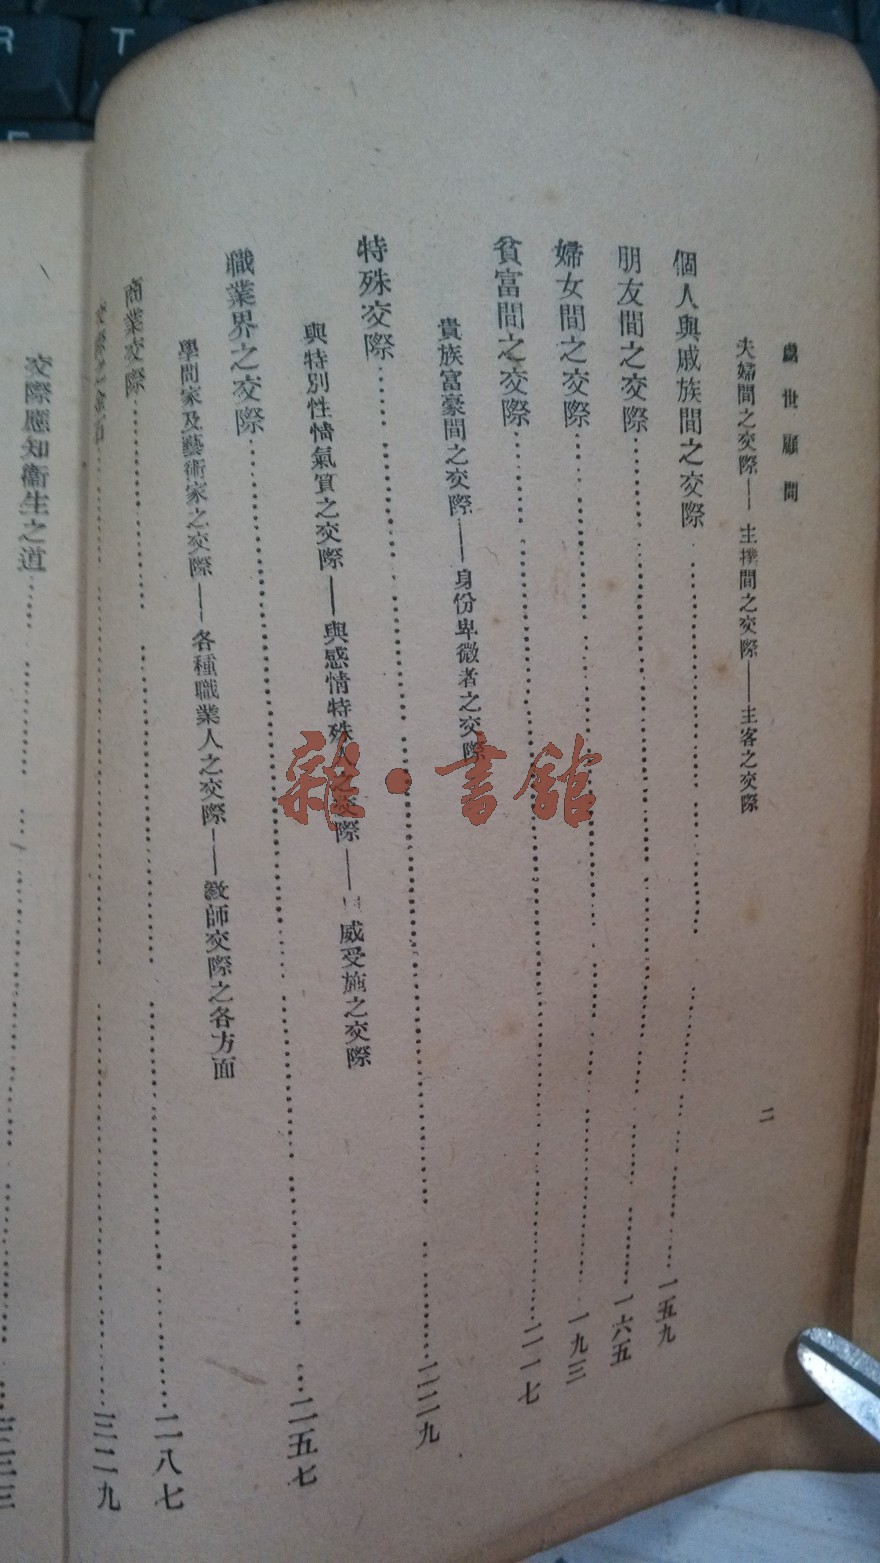 處世顧問
二
夫婦間之交際——主僕間之交際——主客之交際
個人與戚族間之交際……一五九
朋友間之交際……一六五
婦女間之交際……一九三
貧富間之交際……二一七
貴族富豪間之交際——身份卑微者之交際
特殊交際……二二九
與特別性情氣質之交際——與感情特殊人之交際——威受施之交際
職業界之交際……二五七
學問家及藝術家之交際——各種職業人之交際——教師交際之各方面
商業交際……二八七
三二九
交際應知衞生之道……三三三
雜·書館